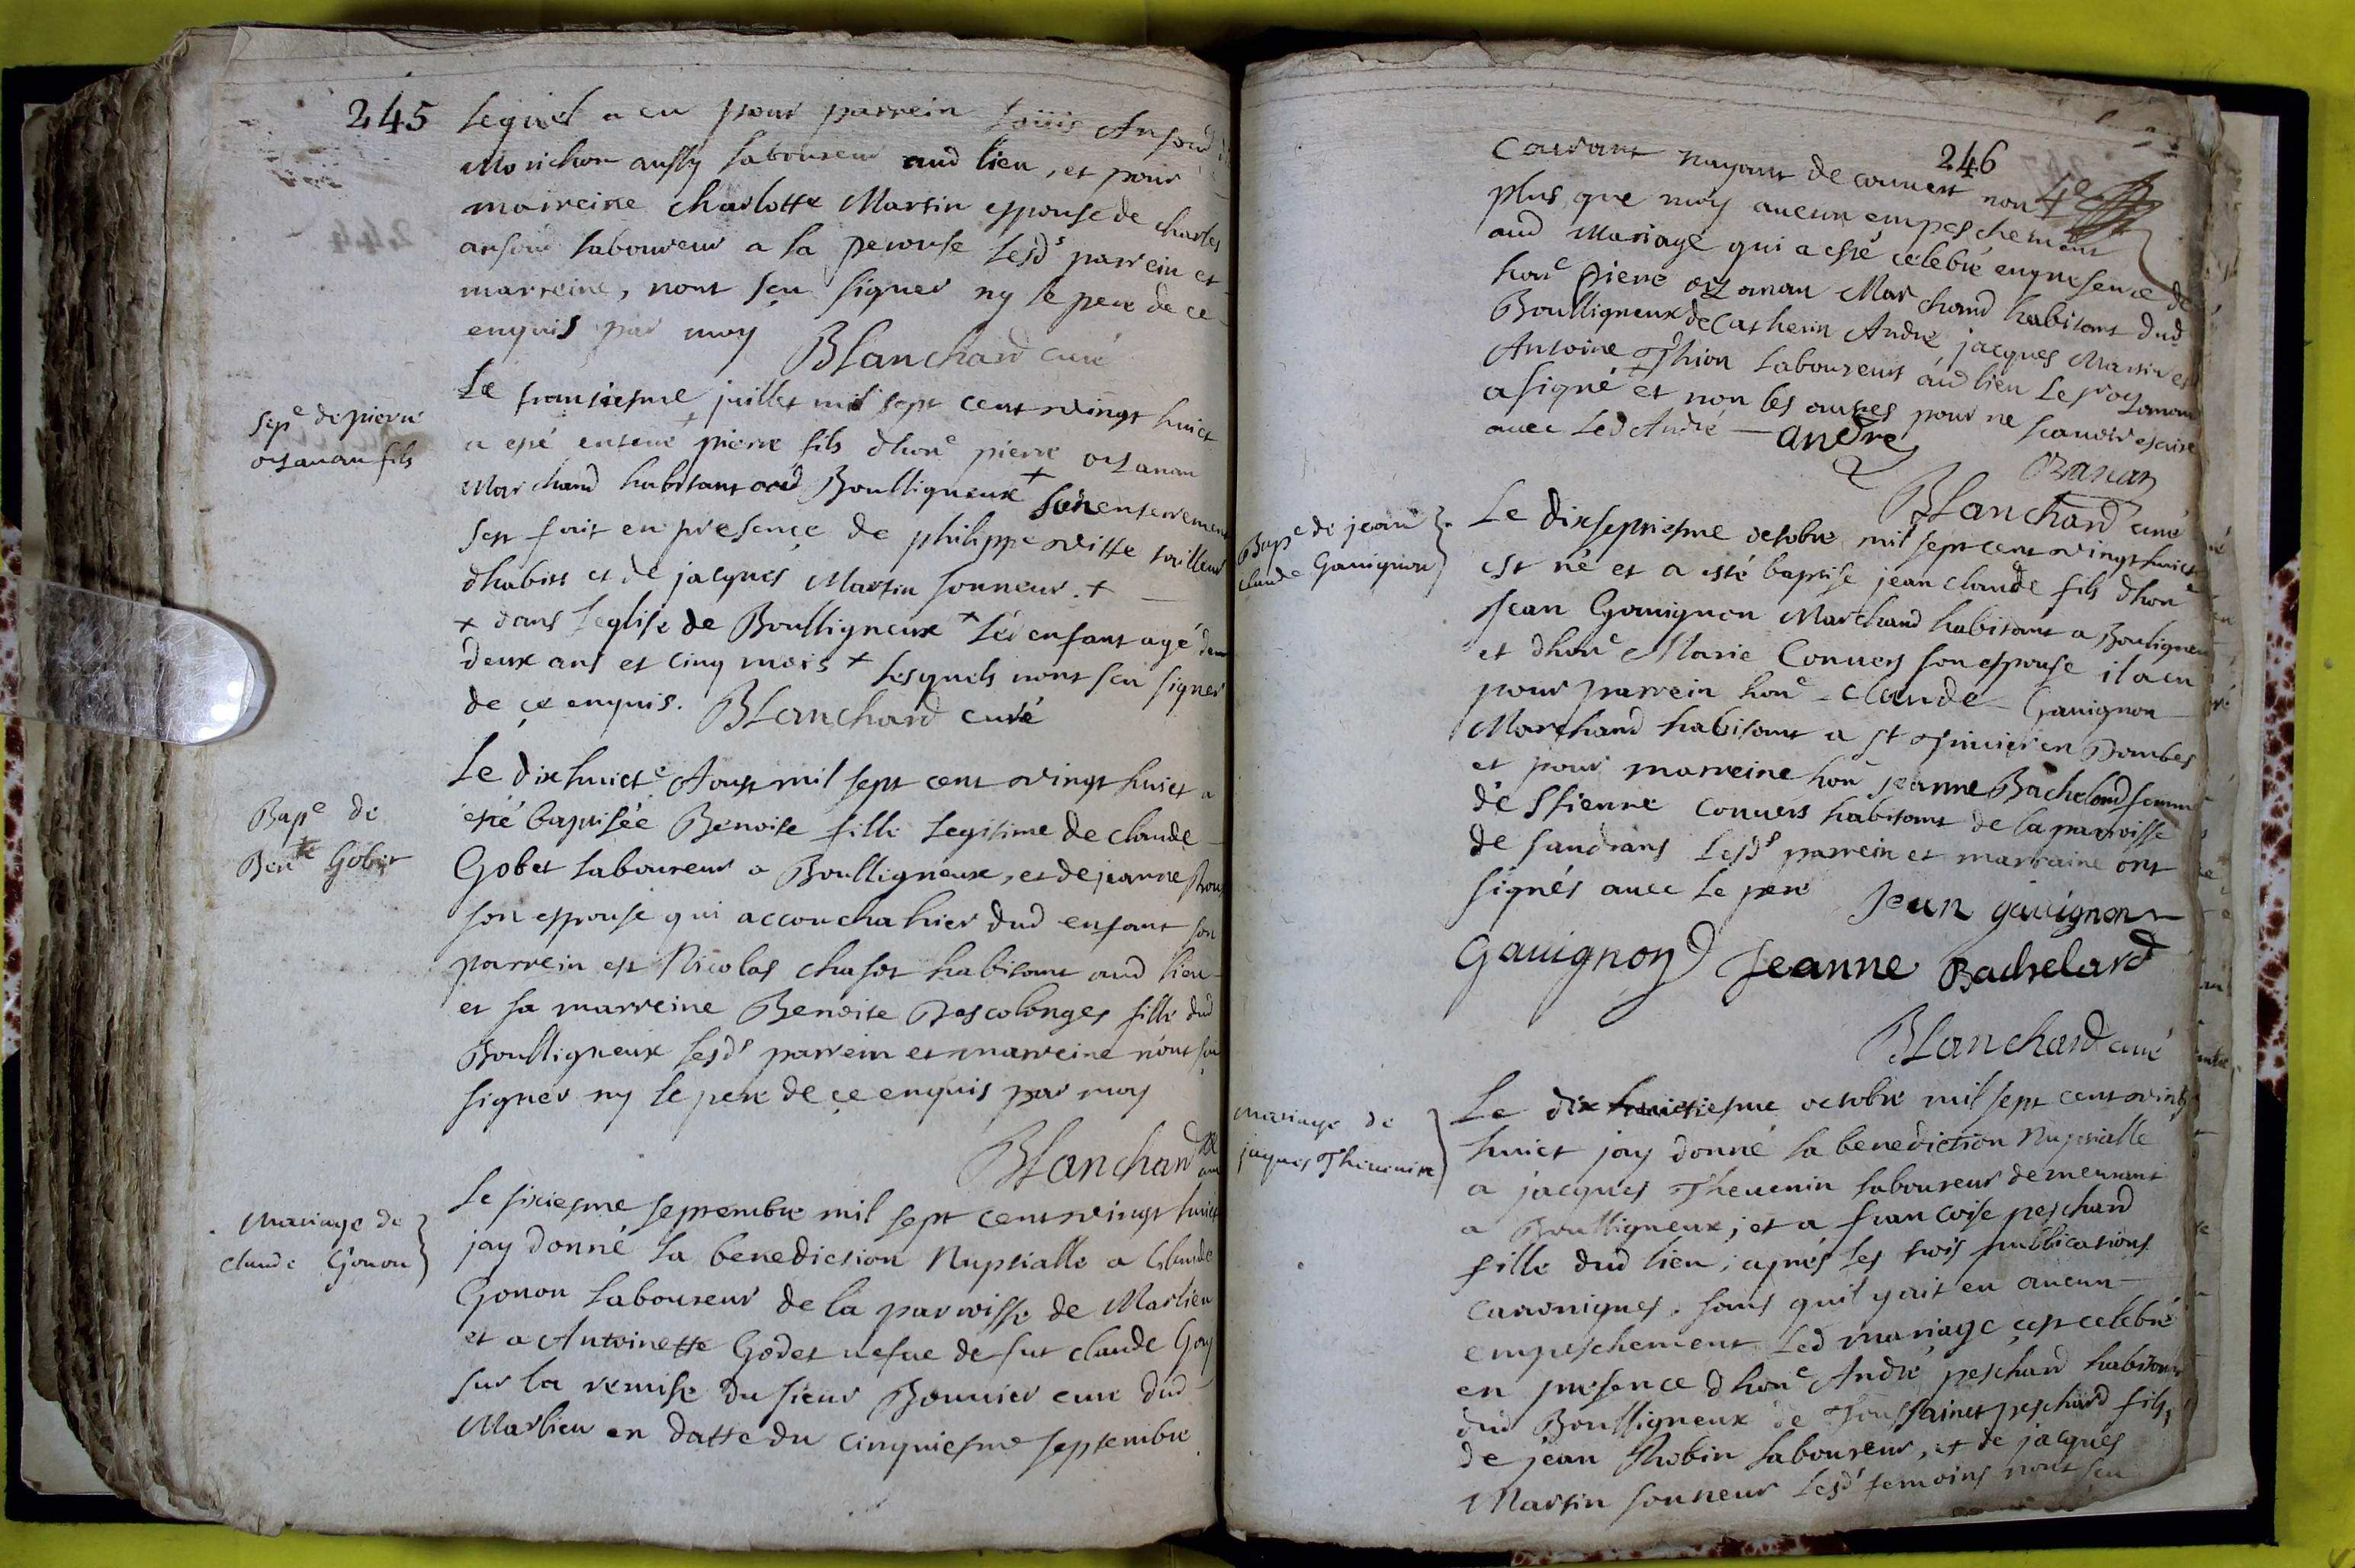 245
Lequel a eu pour parrein Loüis Ansoud
Morichon aussy laboureur aud lieu, et pour
marreine charlotte Martin espouse de charles
ansoud laboureur a la perouse lesds parrein et
marreine, nont sçu signer ny le pere de ce
enquis par moy Blanchard curé
Sepe de pierre
ozanan fils
Le trantiesme juillet mil sept cent vingt huict
a esté enterré + pierre fils dhone pierre ozanan
Marchand habitant aud Boulligneux + son enterrement
sest fait en presence de philippe vitte tailleur
dhabits et de jacques Martin sonneur. +
+ dans leglise de Boulligneux + led enfant agé de
deux ans et cinq mois + lesquels nont sçu signer
de ce enquis. Blanchard curé
Bape de
Bente Gobet
Le dix huicte Aoust mil sept cent vingt huict a
esté baptisée Benoite fille legitime de claude
Gobet laboureur a Boulligneux, et de jeanne
son espouse qui accoucha hier dud enfant son
parrein est Nicolas chasot habitant aud lieu
et sa marreine Benoite Descolonges fille dud
Boulligneux lesds parrein et marreine nont sçu
signer ny le pere de ce enquis par moy
Blanchard curé
Mariage de
claude Gonon
Le sixiesme septembre mil sept cent vingt huict
jay donné la benediction Nuptialle a Claude
Gonon laboureur de la parroisse de Marlieu
et a Antoinette Godet vefue de fut claude Goy
sur la remise du sieur Bouvier curé dud
Marlieu en datte du cinquiesme septembre
246
Courant nayant decouvert non 4e
plus que moy aucun empeschement
aud Mariage qui a esté celebré en presence de
hone pierre ozanan Marchand habitant dud
Boulligneux de Catherin André jacques Martin et
Antoine Thion laboureurs aud lieu le sr ozanan
a signé + et non les autres pour ne scavoir escrire
+ avec led André andre
Ozanan
Blanchard curé
Bape de jean
claude Gauignon
Le dixseptiesme octobre mil sept cent vingt huict
est né et a esté baptise jean claude fils dhone
Jean Gauignon Marchand habitant a Bouligneux
et dhone Marie Convers son espouse il a eu
pour parrein hone claude Gauignon
Marchand habitant a st trivier en Dombes
et pour marreine hone jeanne Bachelard femme
de Stienne convers habitant de la parroisse
de sandrans lesds parrein et marraine ont
signés avec le pere Jean gauignon
Gauignon Jeanne Bachelard
Blanchard curé
Mariage de
jaques Theuenin
Le dix huictiesme octobre mil sept cent vingt
huict jay donné la benediction Nuptialle
a jacques Theuenin laboureur demeurant
a Boulligneux; et a francoise peschard
fille dud lieu; aprés les trois publications
canoniques. sans quil y ait eu aucun
empeschement led mariage cest celebré
en presence dhone André peschard habitant
dud Boulligneux de Toussainct peschard fils,
de jean Robin laboureur, et de jacques
Martin sonneur lesds temoins nont sçu